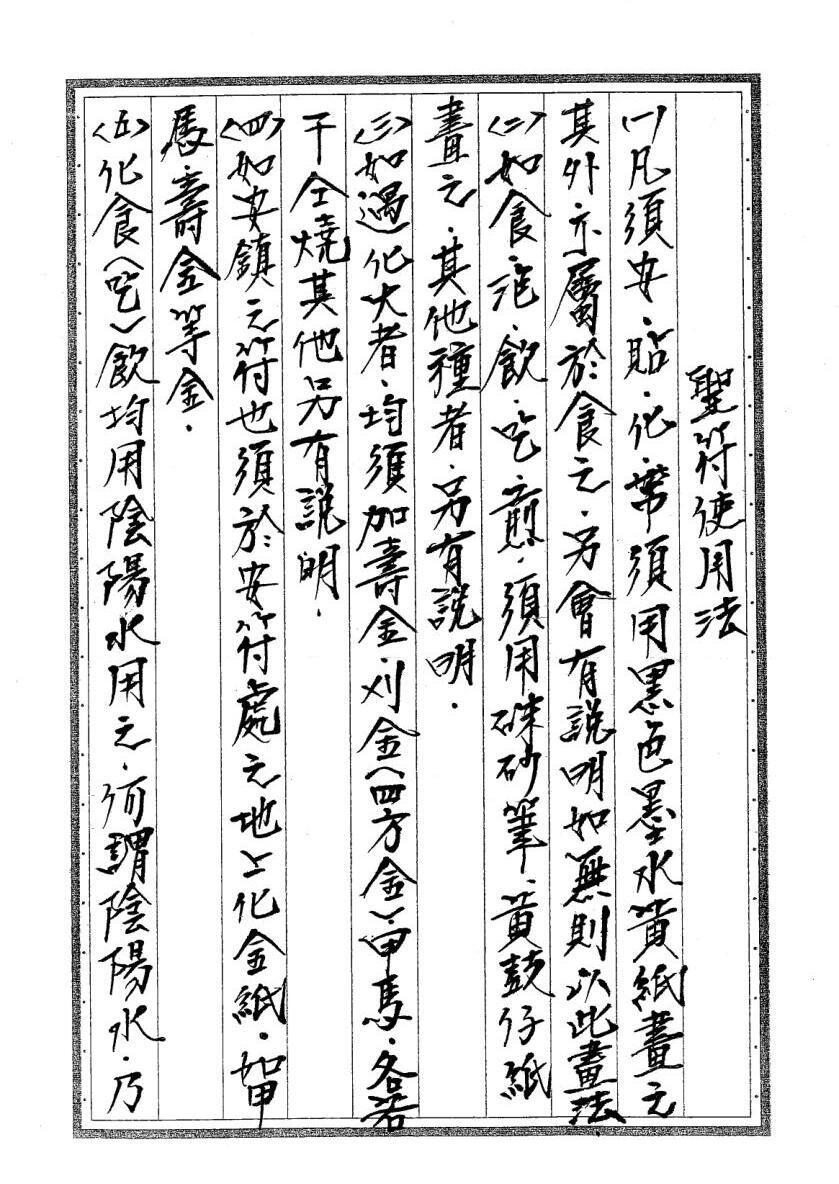 聖符使用法
(一)凡須安·貼·化·帶須用黑色墨水黃紙畫之
其外亦屬於食之·另會有說明如無則以此畫法·
(二)如食·泡·飲·吃·煎·須用硃砂筆·黃鼓仔紙
畫之·其他種者·另有說明·
(三)如過化大者·均須加壽金·刈金(四方金)甲馬·各若
干仝燒其他另有說明·
(四)如安鎮之符也須於安符處之地上化金紙·如甲
馬·壽金等金·
(五)化食(吃)飲均用陰陽水用之·何謂陰陽水·乃